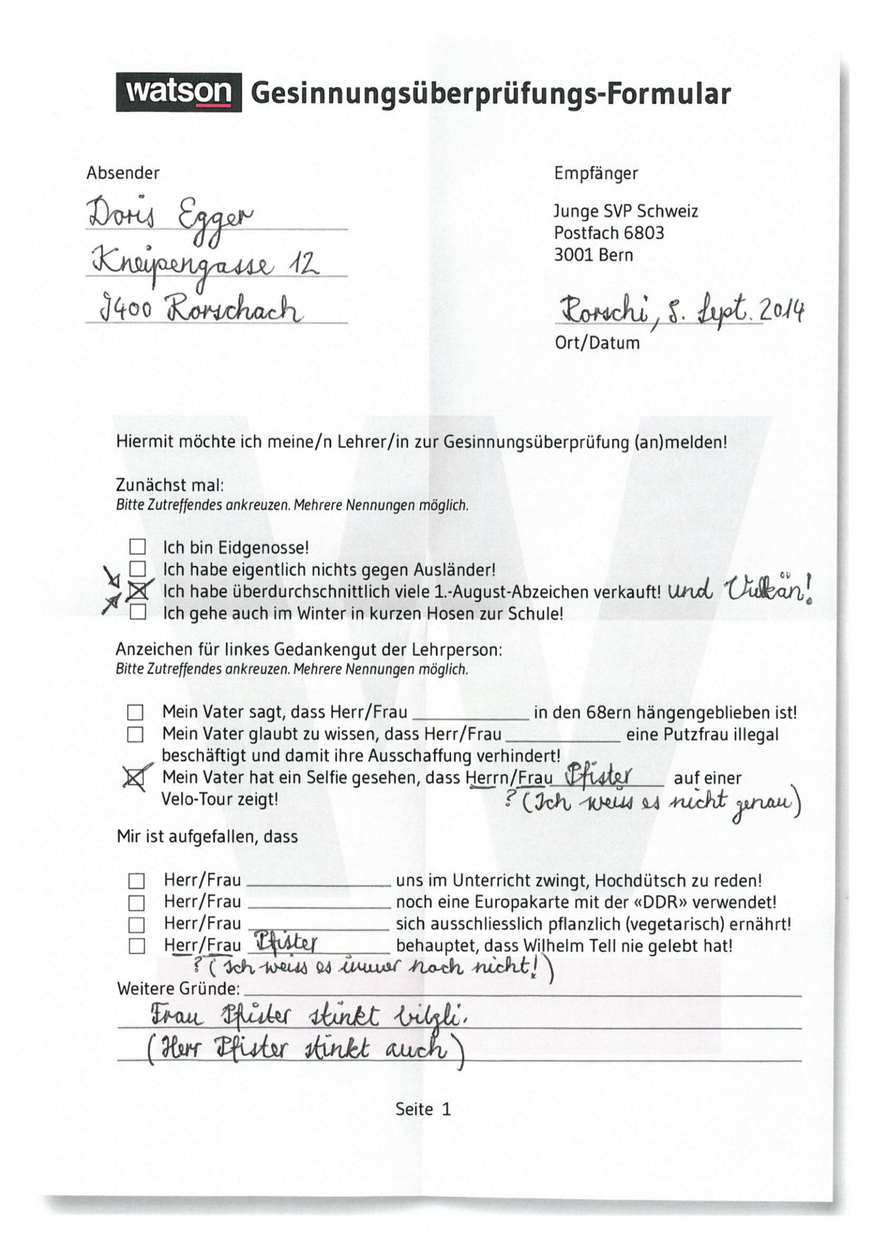 watson Gesinnungsüberprüfungs-Formular
Absender
Doris Egger
Kneipengasse 12
9400 Rorschach
Empfänger
Junge SVP Schweiz
Postfach 6803
3001 Bern
Rorschi, 8. Sept. 2014
Ort/Datum
Hiermit möchte ich meine/n Lehrer/in zur Gesinnungsüberprüfung (an)melden!
Zunächst mal:
Bitte Zutreffendes ankreuzen. Mehrere Nennungen möglich.
Ich bin Eidgenosse!
Ich habe eigentlich nichts gegen Ausländer!
Ich habe überdurchschnittlich viele 1.-August-Abzeichen verkauft! und
Ich gehe auch im Winter in kurzen Hosen zur Schule!
Anzeichen für linkes Gedankengut der Lehrperson:
Bitte Zutreffendes ankreuzen. Mehrere Nennungen möglich.
Mein Vater sagt, dass Herr/Frau ____________ in den 68ern hängengeblieben ist!
Mein Vater glaubt zu wissen, dass Herr/Frau ____________ eine Putzfrau illegal
beschäftigt und damit ihre Ausschaffung verhindert!
Mein Vater hat ein Selfie gesehen, dass Herrn/Frau Pfister auf einer
Velo-Tour zeigt! ? (Ich weiss es nicht genau)
Mir ist aufgefallen, dass
Herr/Frau ____________ uns im Unterricht zwingt, Hochdütsch zu reden!
Herr/Frau ____________ noch eine Europakarte mit der «DDR» verwendet!
Herr/Frau ____________ sich ausschliesslich pflanzlich (vegetarisch) ernährt!
Herr/Frau Pfister behauptet, dass Wilhelm Tell nie gelebt hat!
? (Ich weiss es immer noch nicht!)
Weitere Gründe:
Frau Pfister stinkt bitzli.
(Herr Pfister stinkt auch)
Seite 1